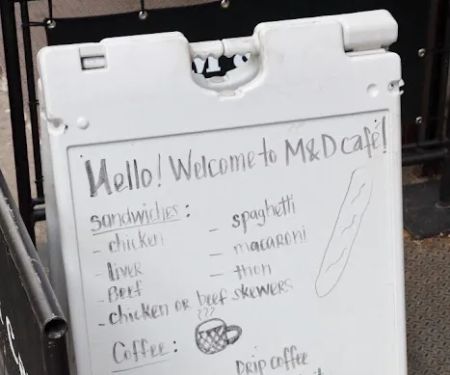 Hello! Welcome to M&D café!
Sandwiches:
- chicken
- liver
- Beef
- spaghetti
- macaroni
- thon
- chicken or beef skewers
Coffee:
Drip coffee